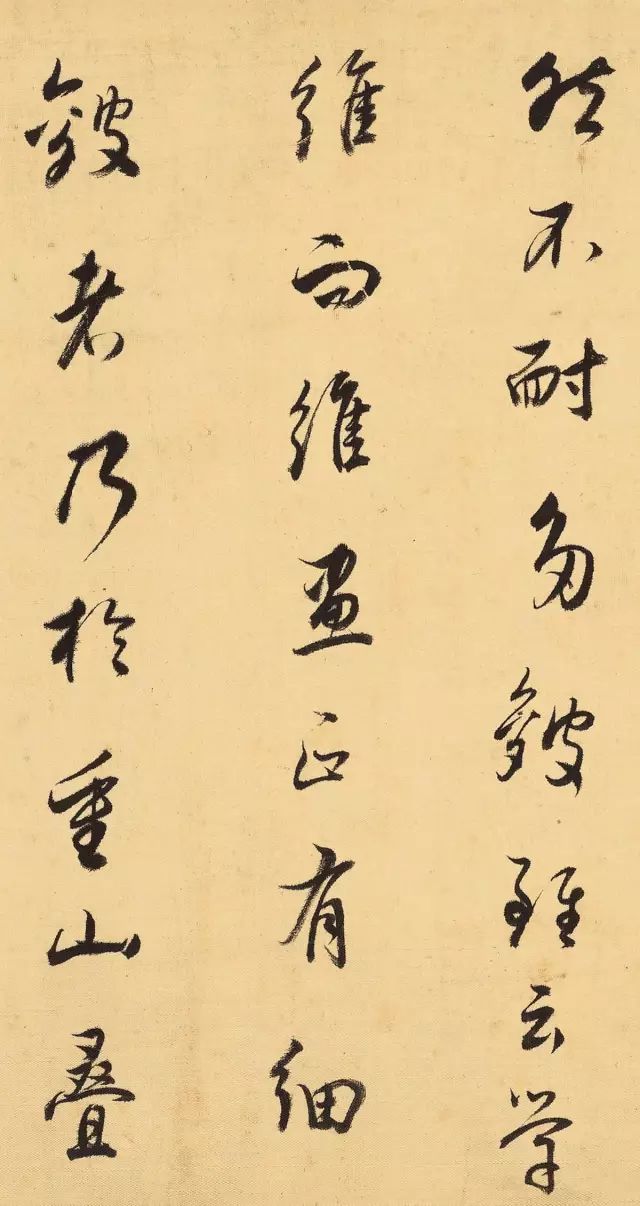 然不耐多皴雖云學
維而維畫正有細
皴者乃於重山疊